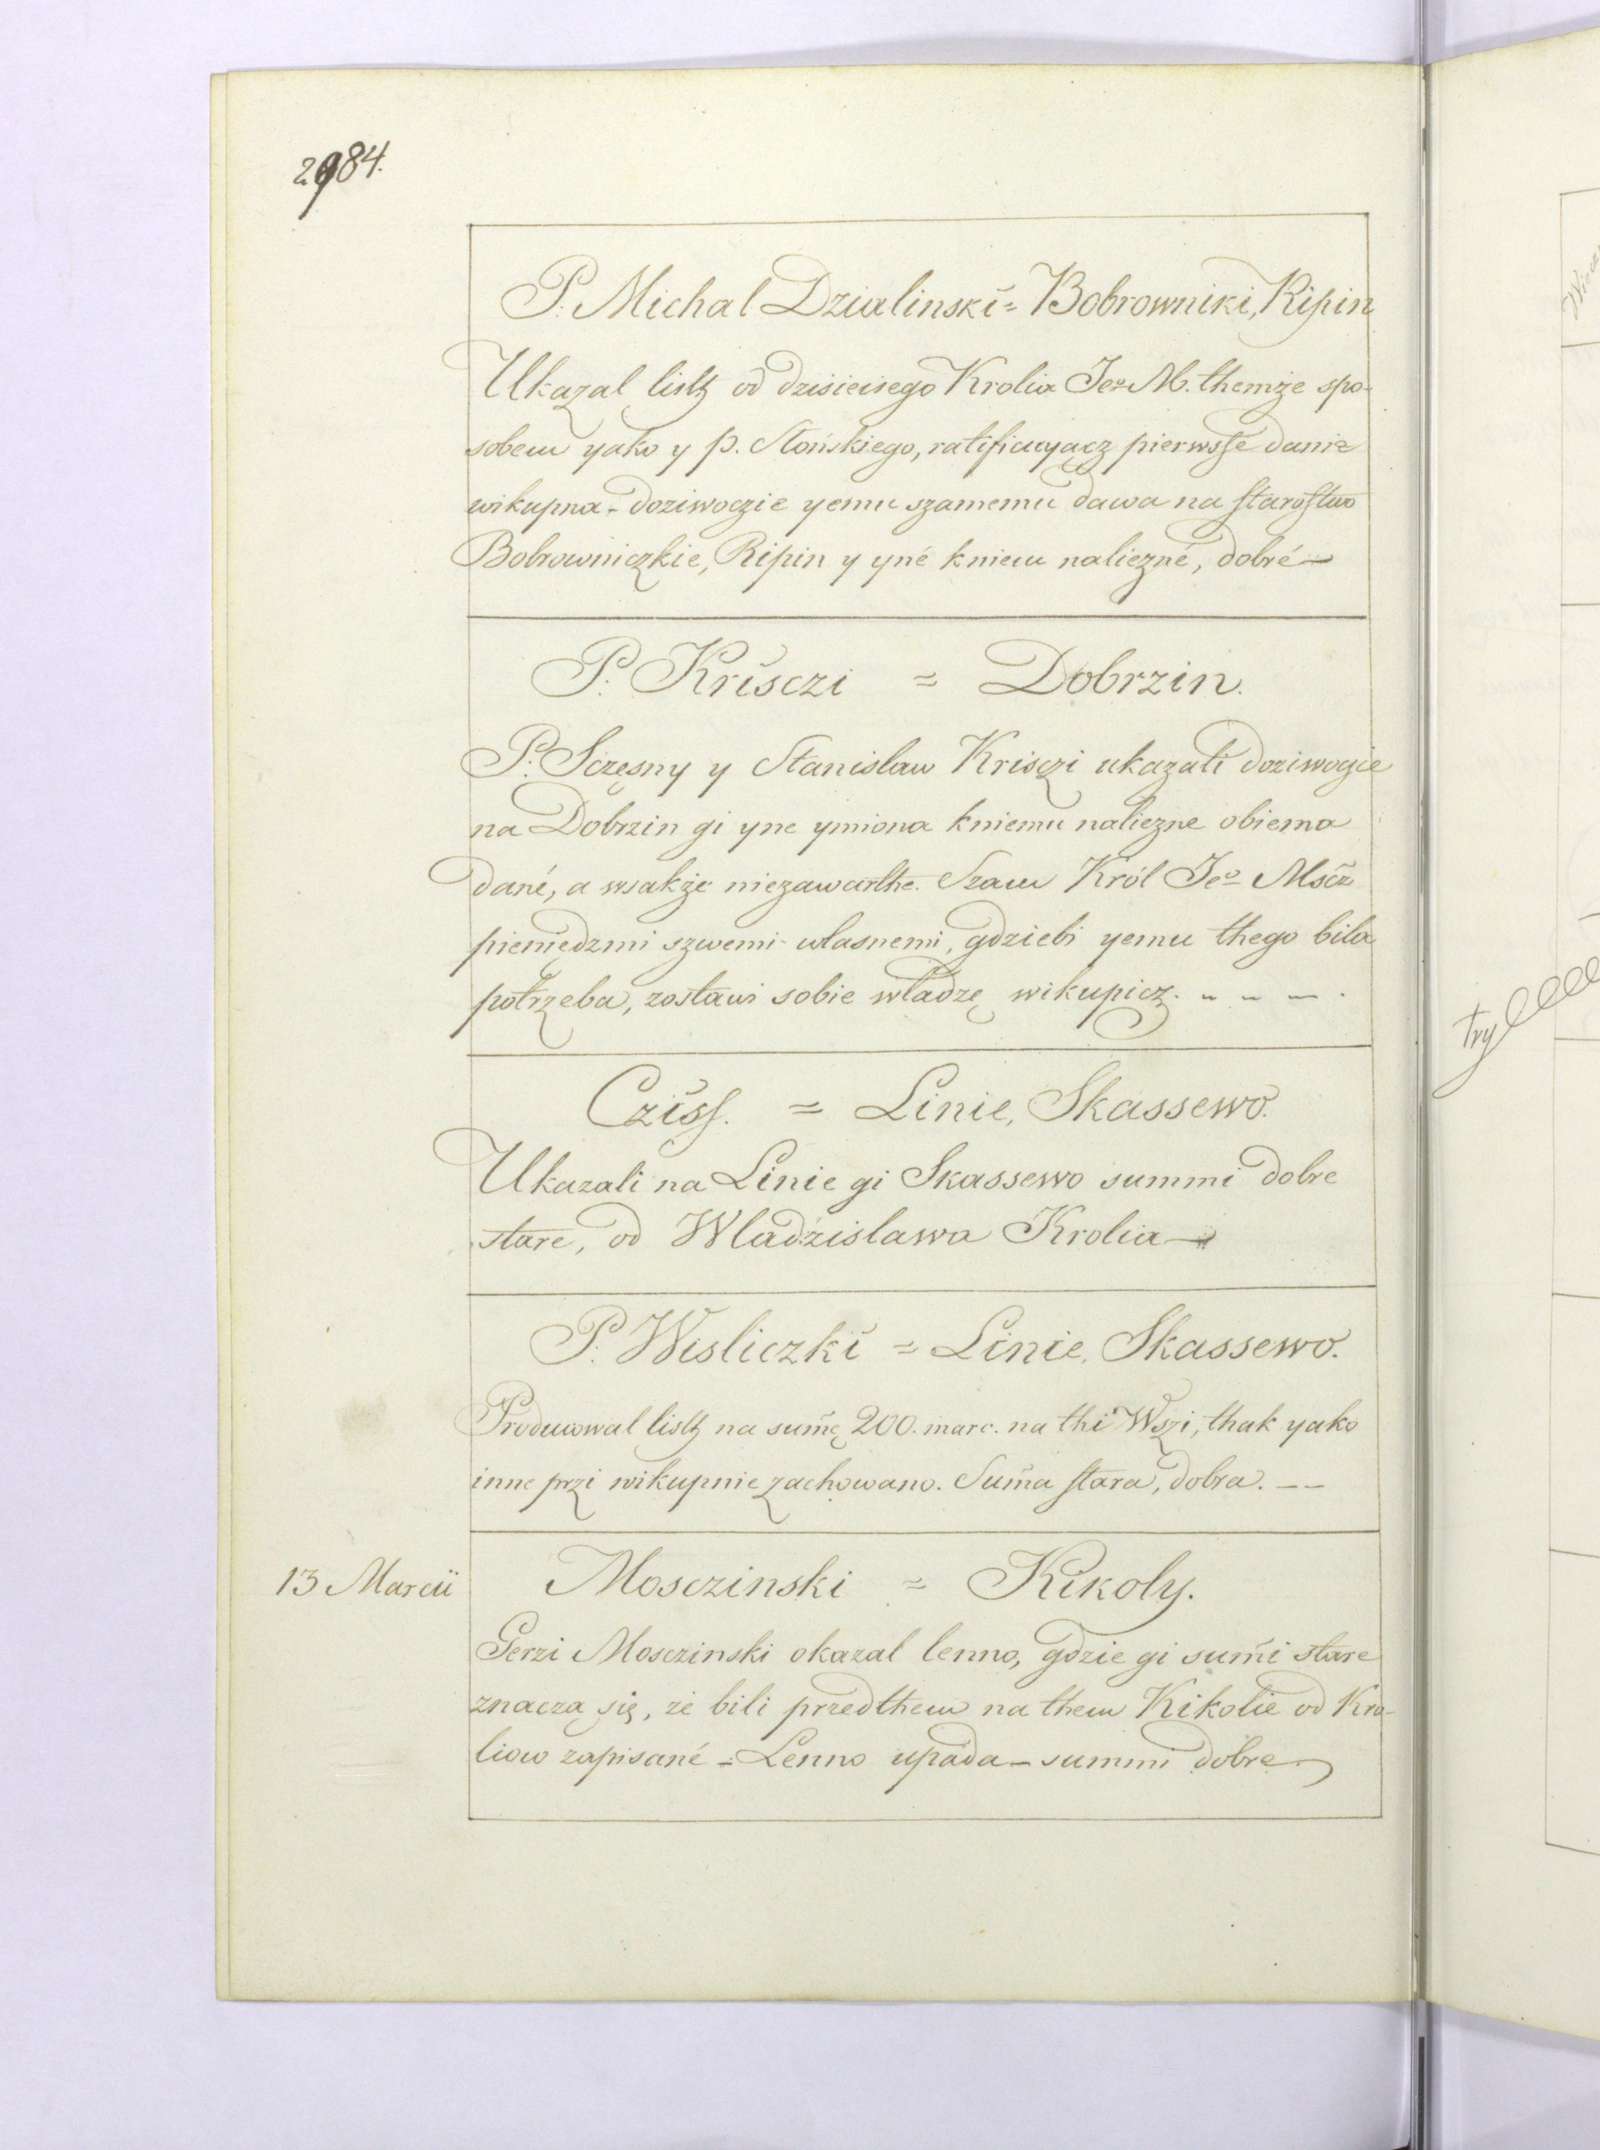 2984.
P. Michal Dzialinski = Bobrowniki, Ripin
Ukazal listÿ od dzisieisego Krolia Jeo M. themże spo-
sobem yako y p. Słońskiego, ratificuyącz pierwsſe danie
wikupna - doziwoczie yemu szamemu dawa na staroſtwo
Bobrowniczkie, Ripin y yné kniemu należné, dobré —
P. Krisczi = Dobrzin.
P. Sczęsny y Stanislaw Krisczi ukazali doziwoczie
na Dobrzin gi yne ymiona kniemu należne obiema
dané, a wsakże niezawarthe. Szam Król Jeo Mścz
pieniędzmi szwemi własnemi, gdziebi yemu thego bila
potrzeba, zostawi sobie władzę wikupicz. - - - .
Czisſ. = Linie, Skassewo.
Ukazali na Linie gi Skassewo summi dobre
stare, od Wladzislawa Krolia —
P. Wisliczki = Linie, Skassewo.
Producowal listÿ na sum̃ę 200. marc. na thi Wszi, thak yako
inne przi wikupnie zachowano. Sum̃a stara, dobra. — —
13 Marcii
Mosczinski = Kikoly.
Gerzi Mosczinski okazal lenno, gdzie gi sum̃i stare
znacza się, że bili przedthem na them Kikolie od Kro-
liow zapisané = Lenno upada — summi dobre
try